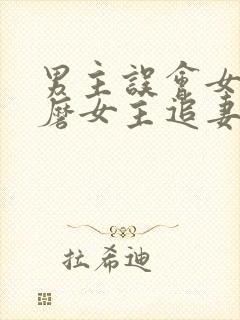 男主誤會女
磨女主追妻
拉希迪